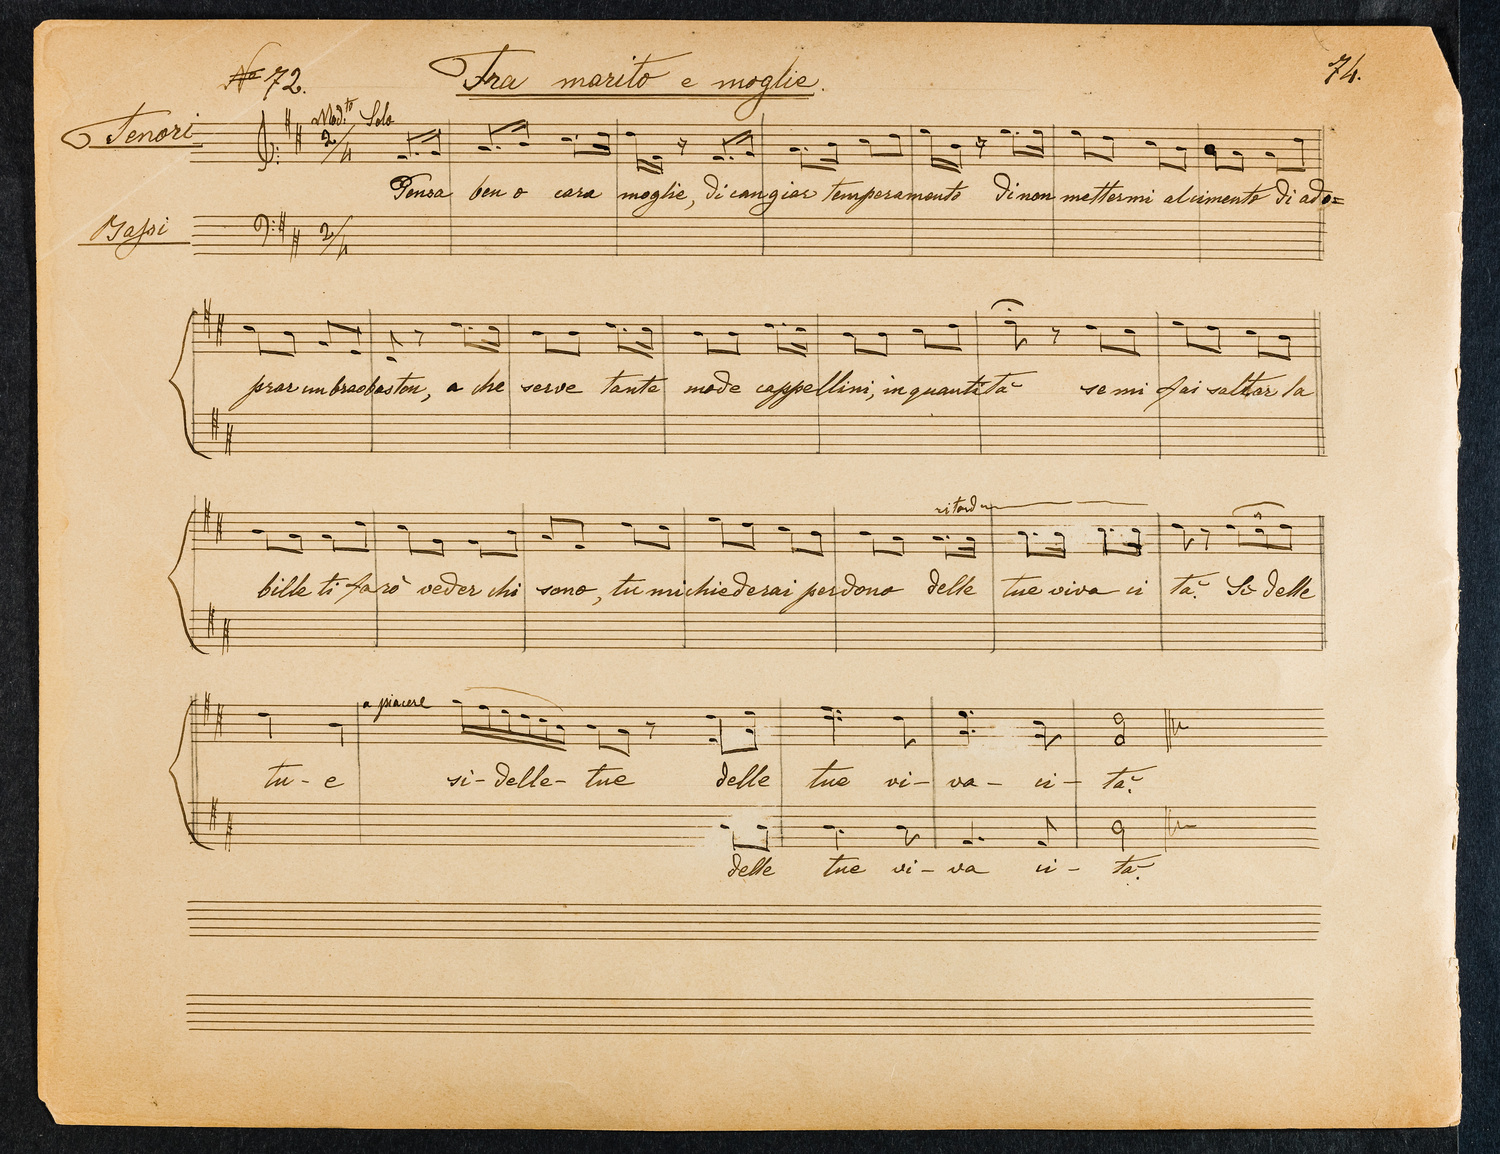 No 72. Fra marito e moglie. 74.
Mod.to Solo
Tenori
Pensa ben o cara moglie, di cangiar temperamento di non mettermi al cimento di ado=
Bassi
prar un brao baston, a che serve tante mode cappellini, in quantità se mi fai saltar la
ritard
bille ti farò veder chi sono, tu mi chiederai perdono delle tue viva ci tà. Sì delle
a piacere
tu - e si - delle - tue delle tue vi - va - ci - tà.
delle tue vi - va ci - tà.